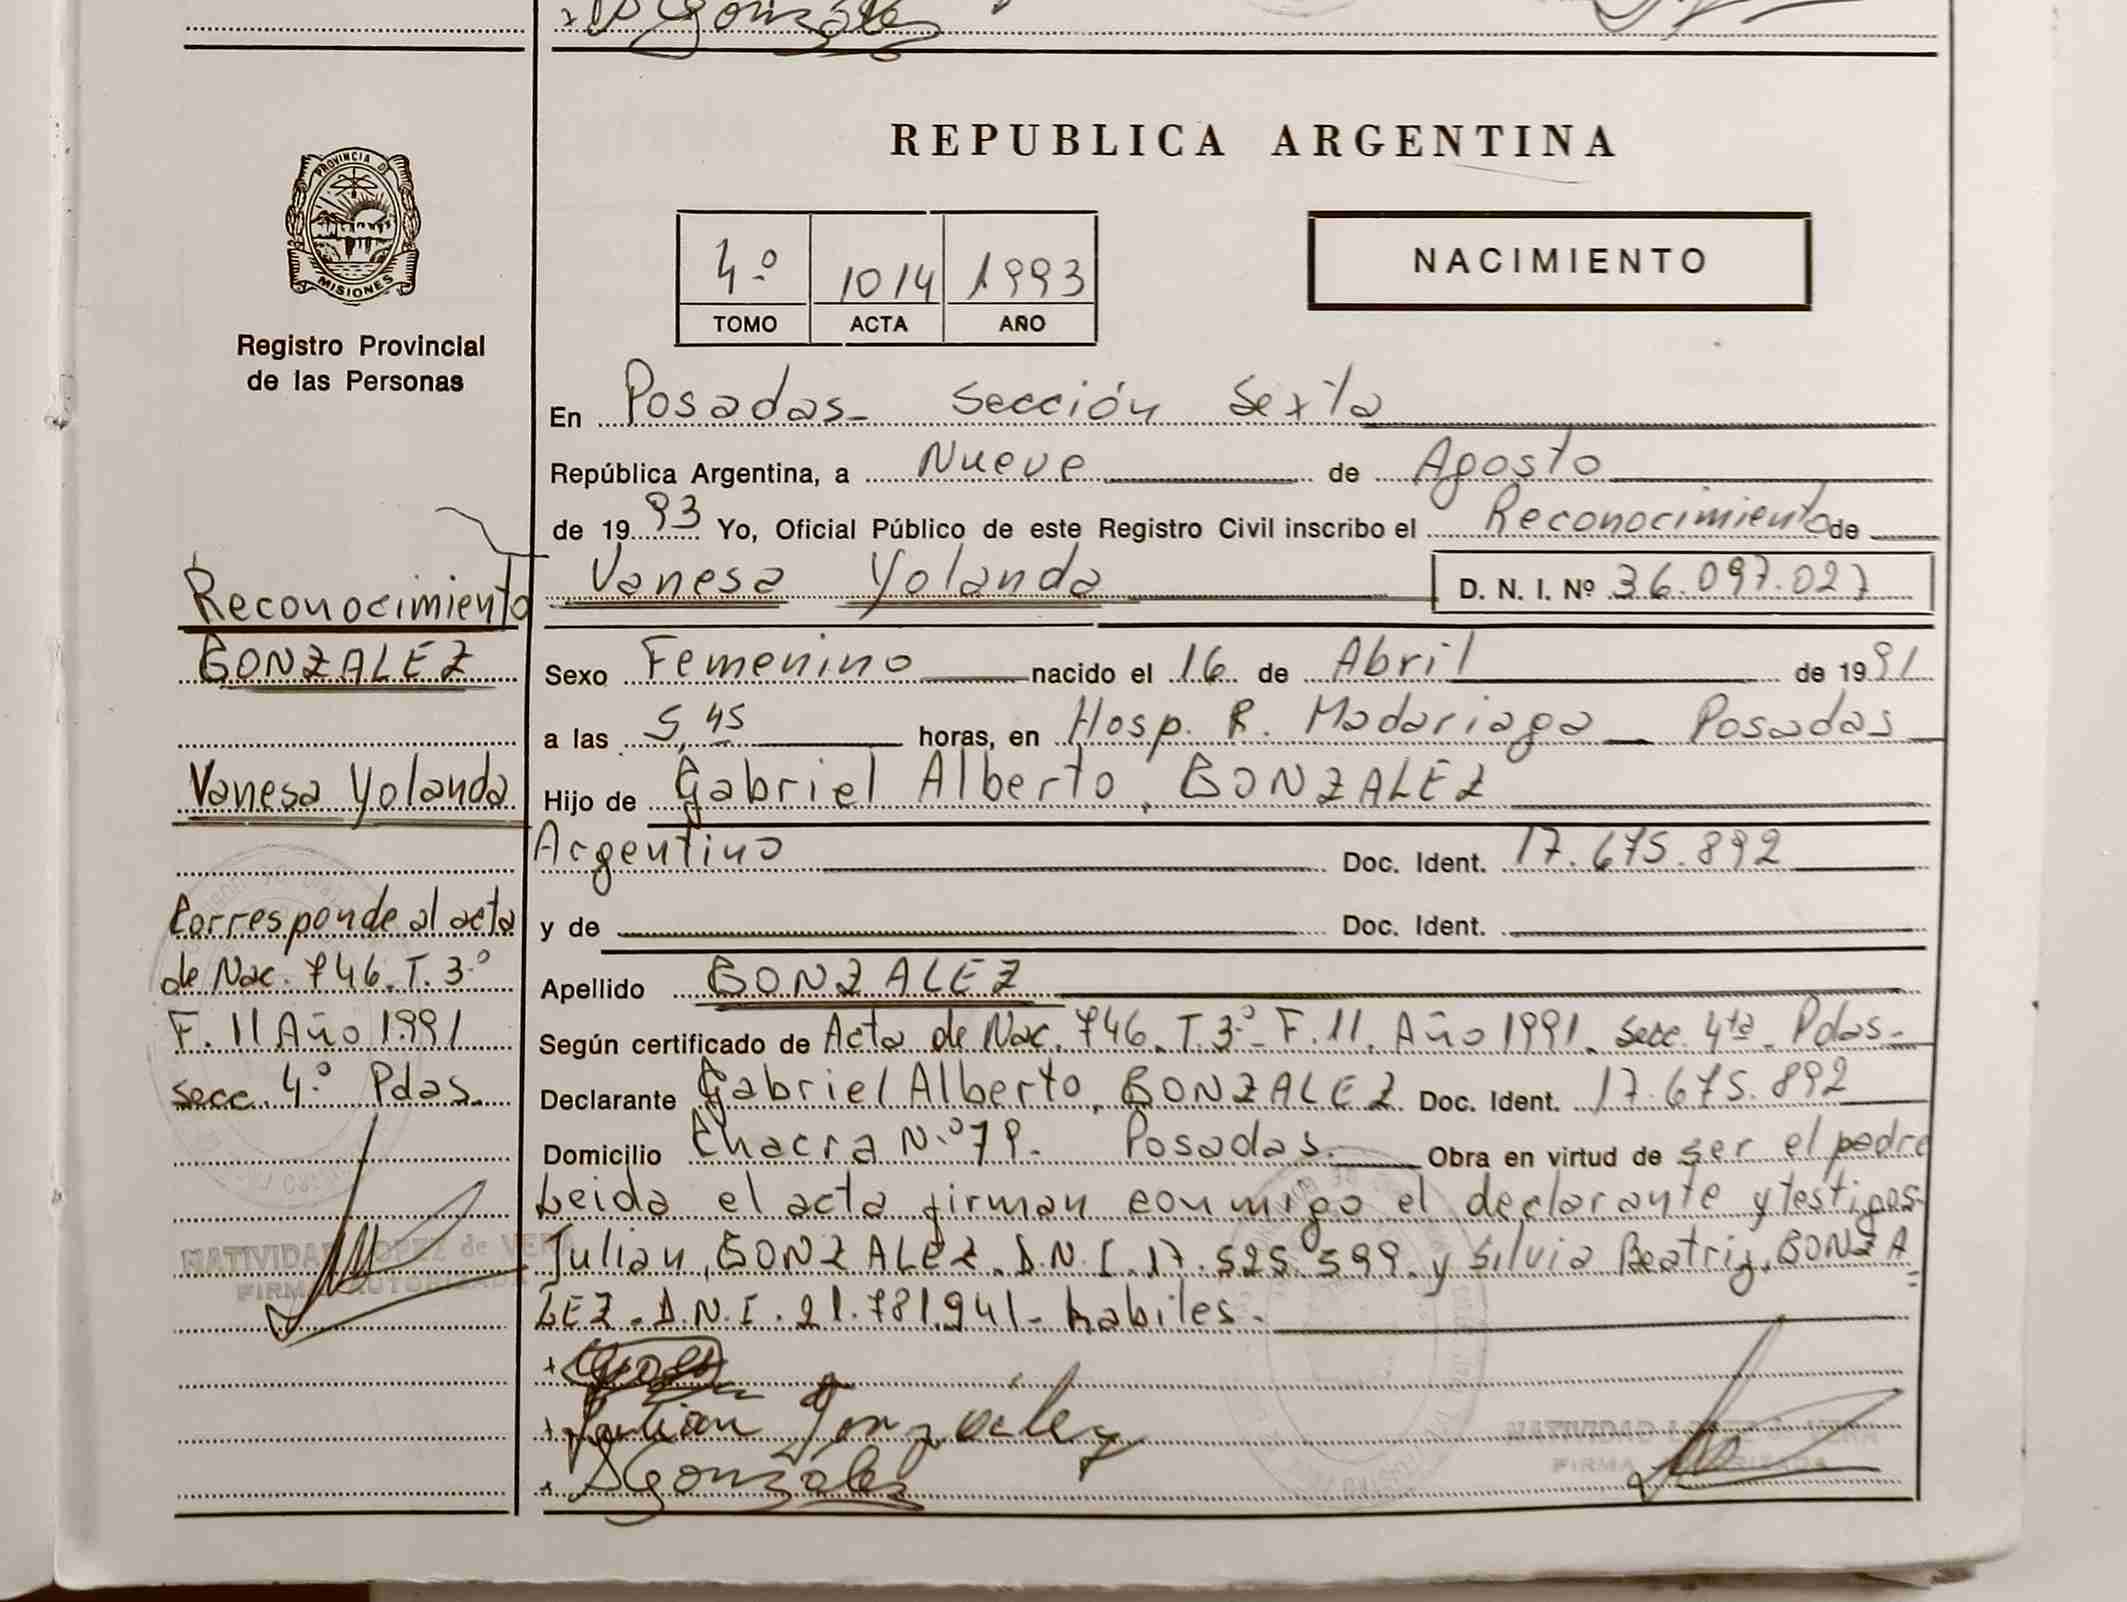 REPUBLICA ARGENTINA
PROVINCIA DE
MISIONES
Registro Provincial
de las Personas
4º 1014 1993
TOMO ACTA AÑO
NACIMIENTO
En Posadas- Sección Sexta
República Argentina, a Nueve de Agosto
de 1993 Yo, Oficial Público de este Registro Civil inscribo el Reconocimiento de
Vanesa Yolanda D. N. I. Nº 36.097.027
Sexo Femenino nacido el 16 de Abril de 1991
a las 5,45 horas, en Hosp. R. Madariaga - Posadas
Hijo de Gabriel Alberto, GONZALEZ
Argentino Doc. Ident. 17.675.892
y de Doc. Ident.
Apellido GONZALEZ
Según certificado de Acta de Nac. 746. T. 3º- F. 11. Año 1991. Secc. 4ta - Pdas-
Declarante Gabriel Alberto, GONZALEZ Doc. Ident. 17.675.892
Domicilio Chacra N.º 79. Posadas. Obra en virtud de ser el padre
Leida el acta firman conmigo el declarante y testigos-
Julian, GONZALEZ. D.N.I. 17.525.599. y Silvia Beatriz, GONZA
LEZ. D.N.I. 21.781.941- habiles-
Julian Gonzalez
SGonzález
Reconocimiento
GONZALEZ
Vanesa Yolanda
Corresponde al acta
de Nac. 746. T. 3.º
F. 11 Año 1991
secc. 4.º Pdas.
NATIVIDAD LOPEZ de VERA
FIRMA AUTORIZADA
NATIVIDAD LOPEZ de VERA
FIRMA AUTORIZADA